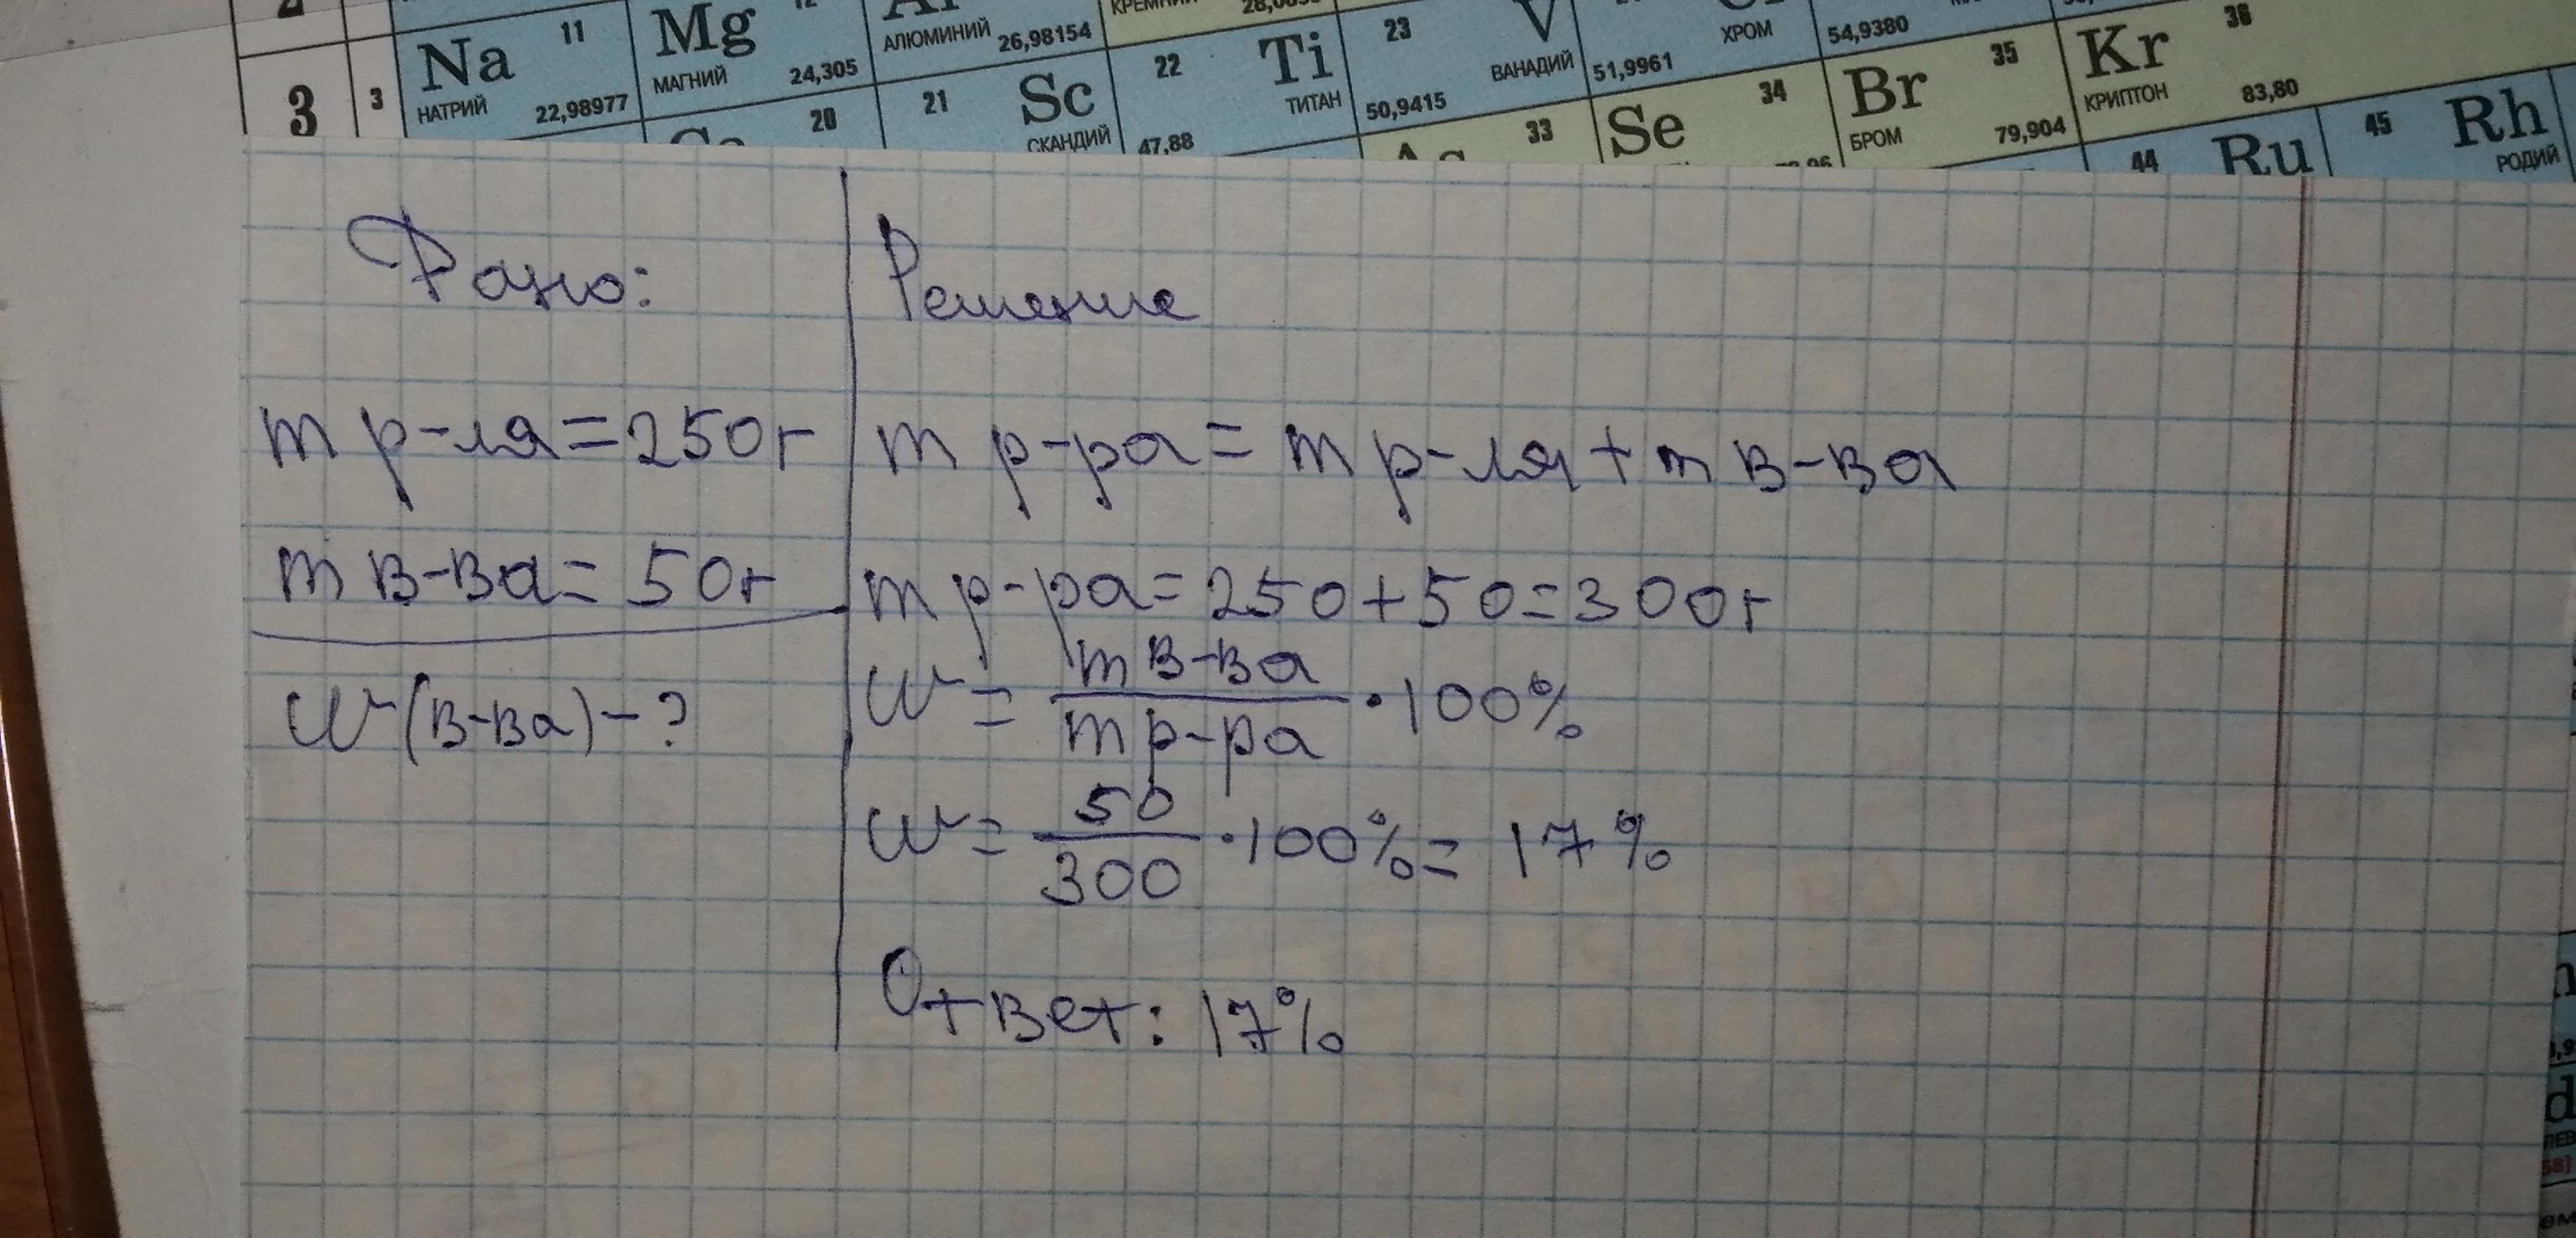 3 3 Na 11 НАТРИЙ 22,98977
Mg МАГНИЙ 24,305
АЛЮМИНИЙ 26,98154
20
21 Sc СКАНДИЙ
22 Ti ТИТАН 47,88
23 V ВАНАДИЙ 50,9415
ХРОМ 51,9961
54,9380
33
Se 34
Br 35 БРОМ 79,904
Kr 36 КРИПТОН 83,80
44 Ru
45 Rh РОДИЙ
Дано:
m р-ля=250г
m в-ва= 50г
W(в-ва)-?
Решение
m р-ра= m р-ля+m в-ва
m р-ра=250+50=300г
W= m в-ва / m р-ра · 100%
W= 50 / 300 · 100%= 17%
Ответ: 17%